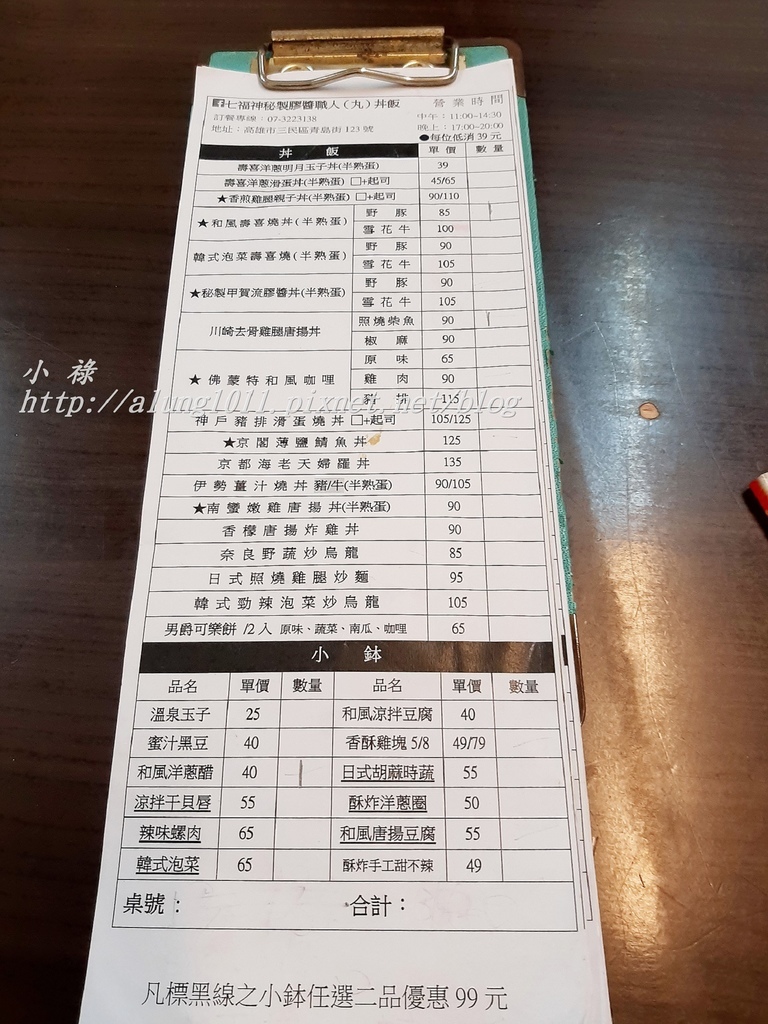 七福神秘製膠醬職人(丸)丼飯 營業時間
訂餐專線：07-3223138 中午：11:00~14:30
地址：高雄市三民區青島街123號 晚上：17:00~20:00
●每位低消39元
丼飯 單價 數量
壽喜洋蔥明月玉子丼(半熟蛋) 39
壽喜洋蔥滑蛋丼(半熟蛋) □+起司 45/65
★香煎雞腿親子丼(半熟蛋) □+起司 90/110
★和風壽喜燒丼(半熟蛋) 野豚 85
雪花牛 100
韓式泡菜壽喜燒(半熟蛋) 野豚 90
雪花牛 105
★秘製甲賀流膠醬丼(半熟蛋) 野豚 90
雪花牛 105
川崎去骨雞腿唐揚丼 照燒柴魚 90
椒麻 90
★佛蒙特和風咖哩 原味 65
雞肉 90
豬排 115
小祿
http://alung1011.pixnet.net/blog
神戶豬排滑蛋燒丼 □+起司 105/125
★京閣薄鹽鯖魚丼 125
京都海老天婦羅丼 135
伊勢薑汁燒丼豬/牛(半熟蛋) 90/105
★南蠻嫩雞唐揚丼(半熟蛋) 90
香檬唐揚炸雞丼 90
奈良野蔬炒烏龍 85
日式照燒雞腿炒麵 95
韓式勁辣泡菜炒烏龍 105
男爵可樂餅 /2入 原味、蔬菜、南瓜、咖哩 65
小缽
品名 單價 數量 品名 單價 數量
溫泉玉子 25 和風涼拌豆腐 40
蜜汁黑豆 40 香酥雞塊 5/8 49/79
和風洋蔥醋 40 日式胡麻時蔬 55
涼拌干貝唇 55 酥炸洋蔥圈 50
辣味螺肉 65 和風唐揚豆腐 55
韓式泡菜 65 酥炸手工甜不辣 49
桌號： 合計：
凡標黑線之小缽任選二品優惠99元